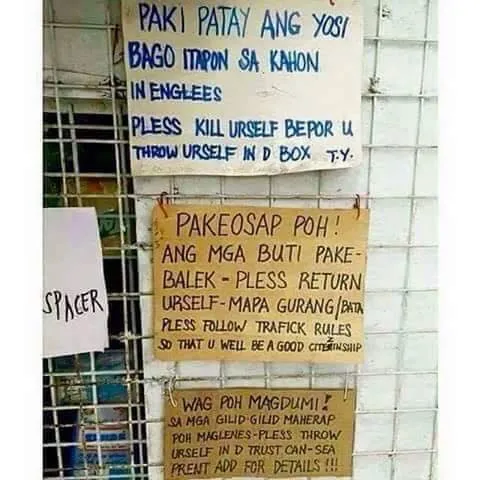 PAKI PATAY ANG YOSI
BAGO ITAPON SA KAHON
IN ENGLEES
PLESS KILL URSELF BEPOR U
THROW URSELF IN D BOX T.Y.
SPACER
PAKEOSAP POH!
ANG MGA BUTI PAKE-
BALEK - PLESS RETURN
URSELF - MAPA GURANG/BATA
PLESS FOLLOW TRAFICK RULES
SO THAT U WELL BE A GOOD CITEZINSHIP
WAG POH MAGDUMI!
SA MGA GILID-GILID MAHERAP
POH MAGLENES - PLESS THROW
URSELF IN D TRUST CAN - SEA
PRENT ADD FOR DETAILS !!!